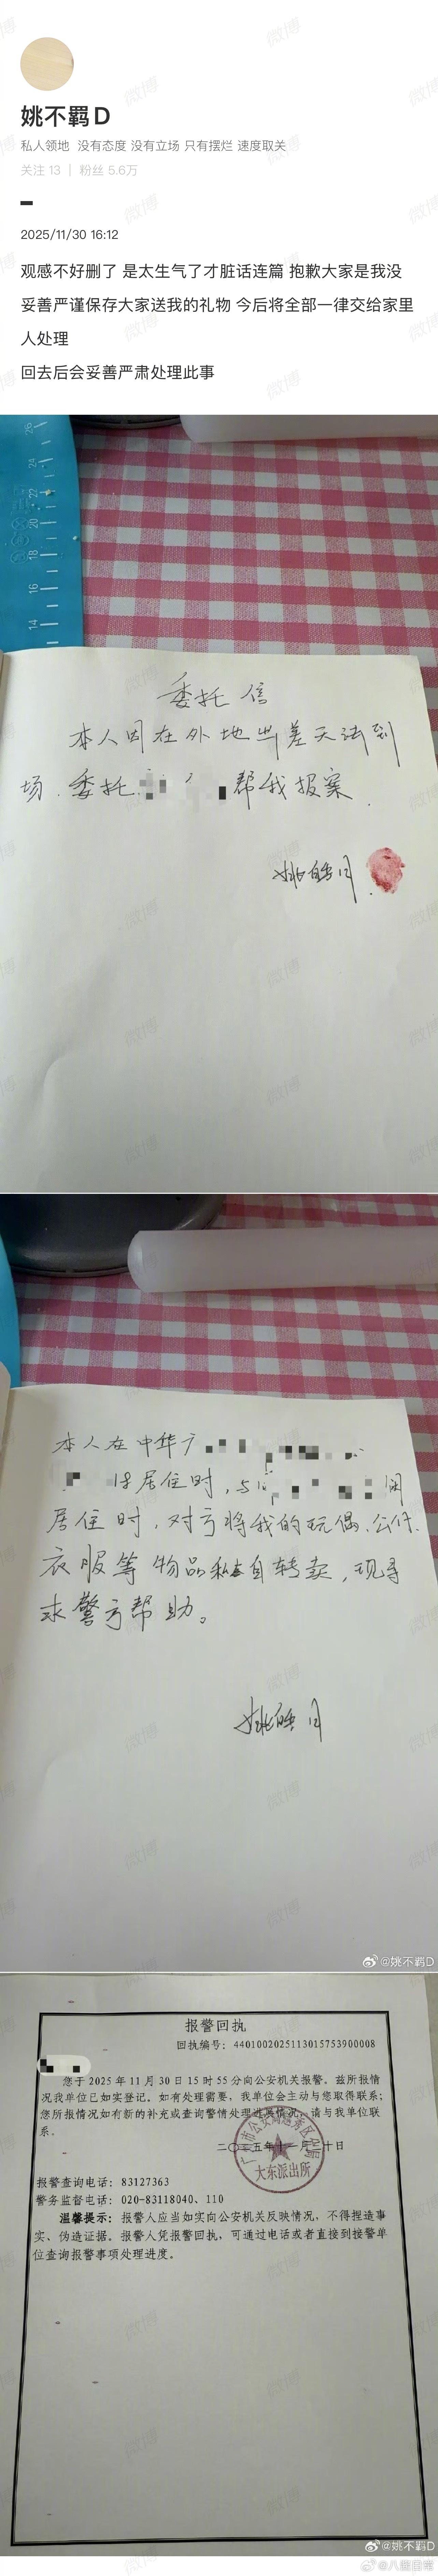 姚不羁D
私人领地 没有态度 没有立场 只有摆烂 速度取关
关注 13 | 粉丝 5.6万
2025/11/30 16:12
观感不好删了 是太生气了才脏话连篇 抱歉大家是我没
妥善严谨保存大家送我的礼物 今后将全部一律交给家里
人处理
回去后会妥善严肃处理此事
26
24
22
20
18
16
14
委托信
本人因在外地出差无法到
场.委托 帮我报案.
姚皓月
本人在中华广
居住时,与 间
居住时,对方将我的玩偶、公仔、
衣服等物品私自转卖,现寻
求警方帮助。
姚皓月
@姚不羁D
报警回执
回执编号:4401002025113015753900008
您于2025年11月30日15时55分向公安机关报警。兹所报情
况我单位已如实登记。如有处理需要,我单位会主动与您取得联系;
您所报情况如有新的补充或查询警情处理进展情况,请与我单位联
系。
二〇二五年十一月三十日
大东派出所
报警查询电话:83127363
警务监督电话:020-83118040、110
温馨提示:报警人应当如实向公安机关反映情况,不得捏造事
实、伪造证据。报警人凭报警回执,可通过电话或者直接到接警单
位查询报警事项处理进度。
@姚不羁D
微博